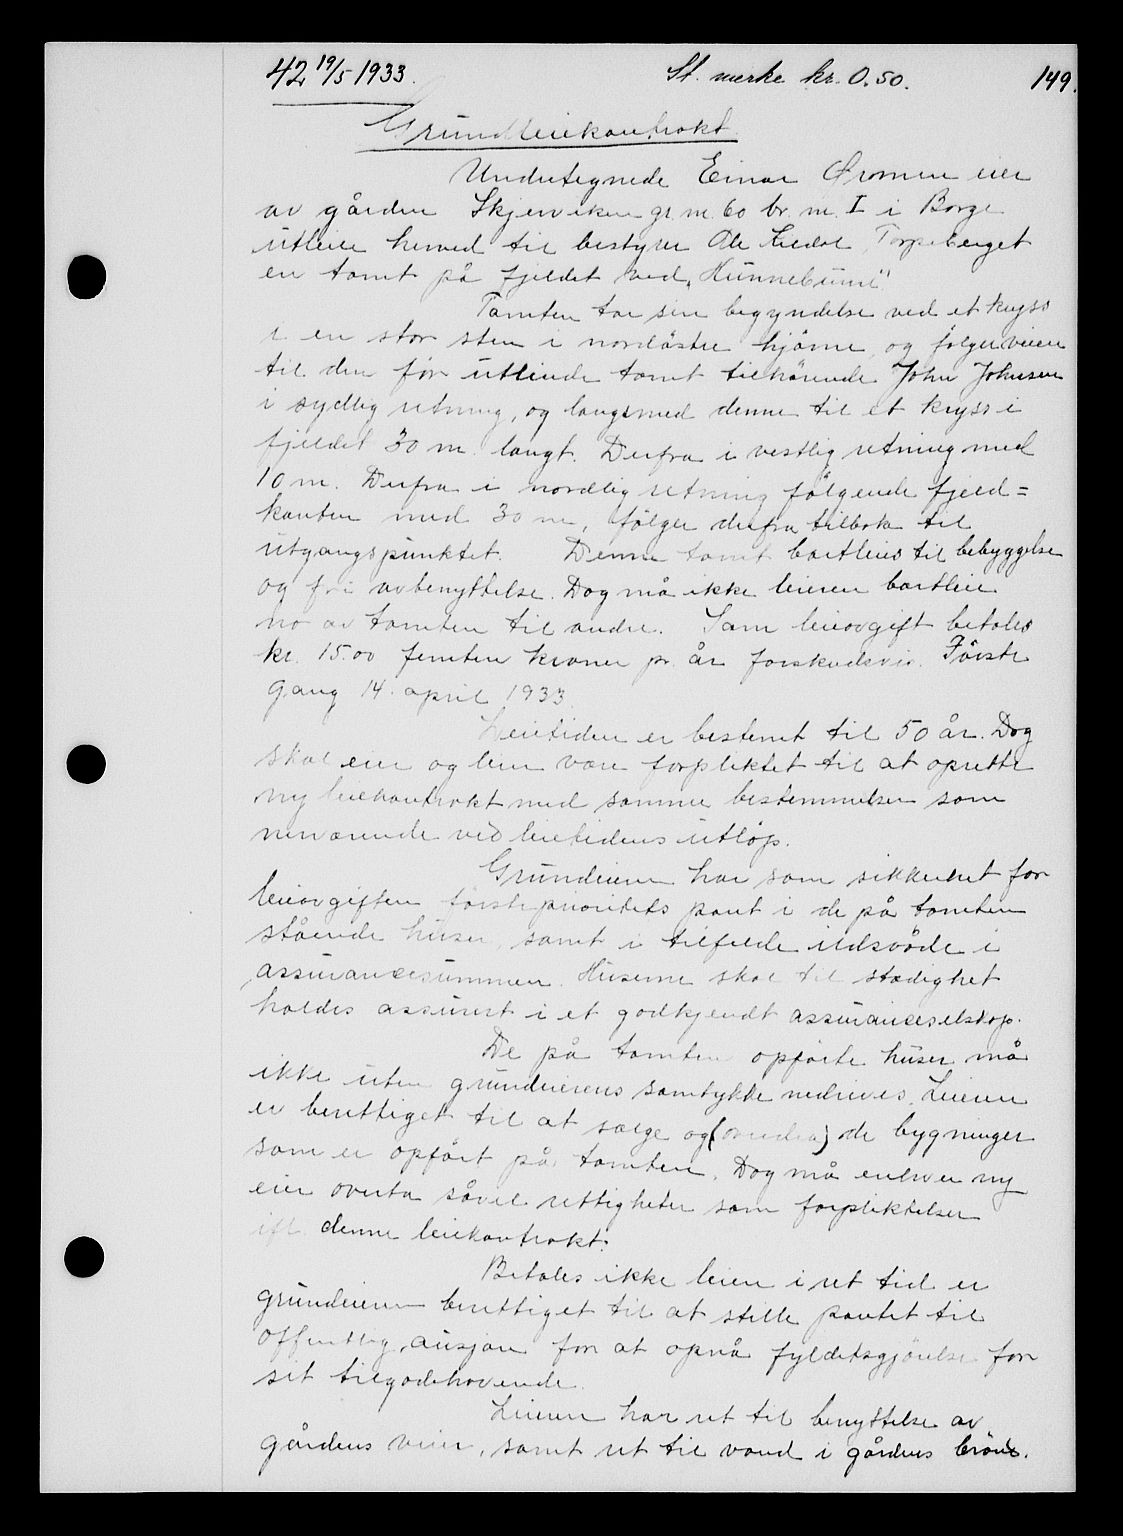 42 19/5 1933. St. merke kr. 0.50. 149.
Grundleiekontrakt
Undertegnede Einar Øromen eier
av gården Skjærviken gr. nr. 60 br. nr. I i Borge
utleier herved til bestyrer Ole Torpeberget
en tomt på fjeldet ved "Hunnebunn"
Tomten tar sin begyndelse ved et kryss
i en stor sten i nordöstre hjörne, og fölger veien
til den för utleiede tomt tilhörende John Johnsen
i sydlig retning, og langsmed denne til et kryss i
fjeldet 30 m. langt. Derfra i vestlig retning med
10 m. Derfra i nordlig retning fölgende fjeld=
kanten med 30 m, fölger derfra tilbake til
utgangspunktet. Denne tomt bortleies til bebyggelse
og fri avbenyttelse. Dog må ikke leieren bortleie
no av tomten til andre. Som leieavgift betales
kr. 15.00 femten kroner pr. år forskudsvis. Förste
gang 14. april 1933.
Leietiden er bestemt til 50 år. Dog
skal eier og leier være forpliktet til at oprette
ny leiekontrakt med samme bestemmelser som
nerværende ved leietidens utlöp.
Grundeieren har som sikkerhet for
leieavgiften förste prioritets pant i de på tomten
stående huser, samt i tilfelde ildsvåde i
assurancesummen. Huserne skal til stadighet
holdes assurert i et godkjendt assuranceselskap.
De på tomten opförte huser må
ikke uten grundeierens samtykke nedrives. Leieren
er berettiget til at sælge og (overdra) de bygninger
som er opfört på tomten. Dog må enhver ny
eier overta såvel rettigheter som forpliktelser
ifl. denne leiekontrakt.
Betales ikke leien i ret tid er
grundeieren berettiget til at stille pantet til
offentlig ausjon for at opnå fyldestgjörelse for
sit tilgodehavende.
Leieren har ret til benyttelse av
gårdens veier, samt ret til vand i gårdens brönd.